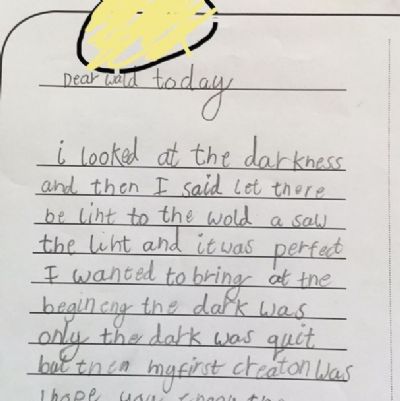 Dear wald today
i looked at the darkness
and then I said let there
be liht to the wold a saw
the liht and it was perfect
I wanted to bring at the
begineng the dark was
only the dark was quit
but then my first creaton was
I hope you the